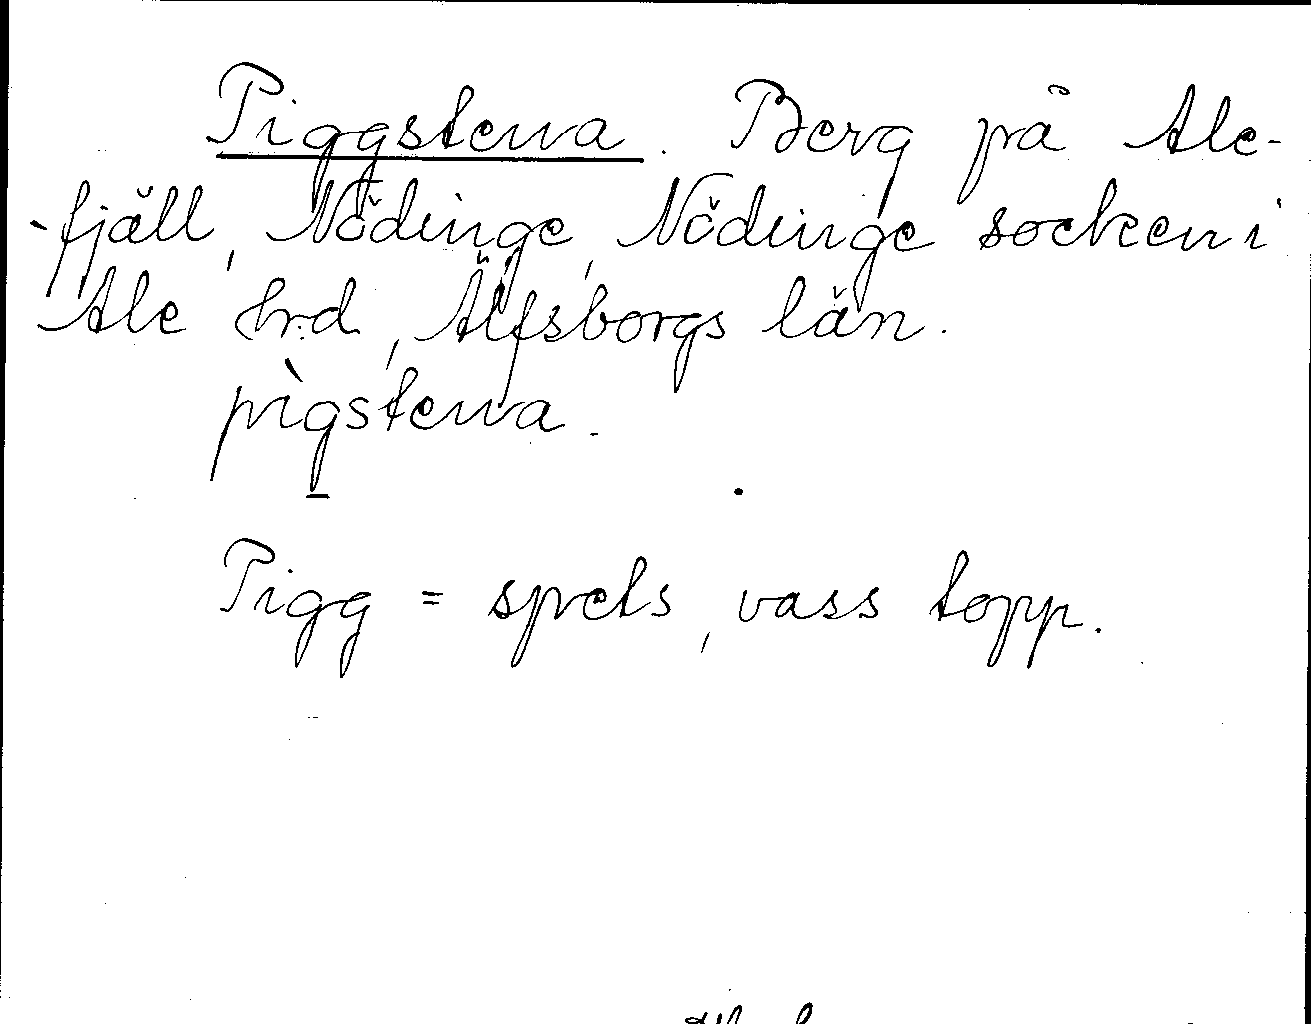 Piggstena. Berg på Ale-
fjäll, Nödinge, Nödinge socken i
Ale hrd, Älfsborgs län.
pìgstena.
Pigg = spets, vass topp.